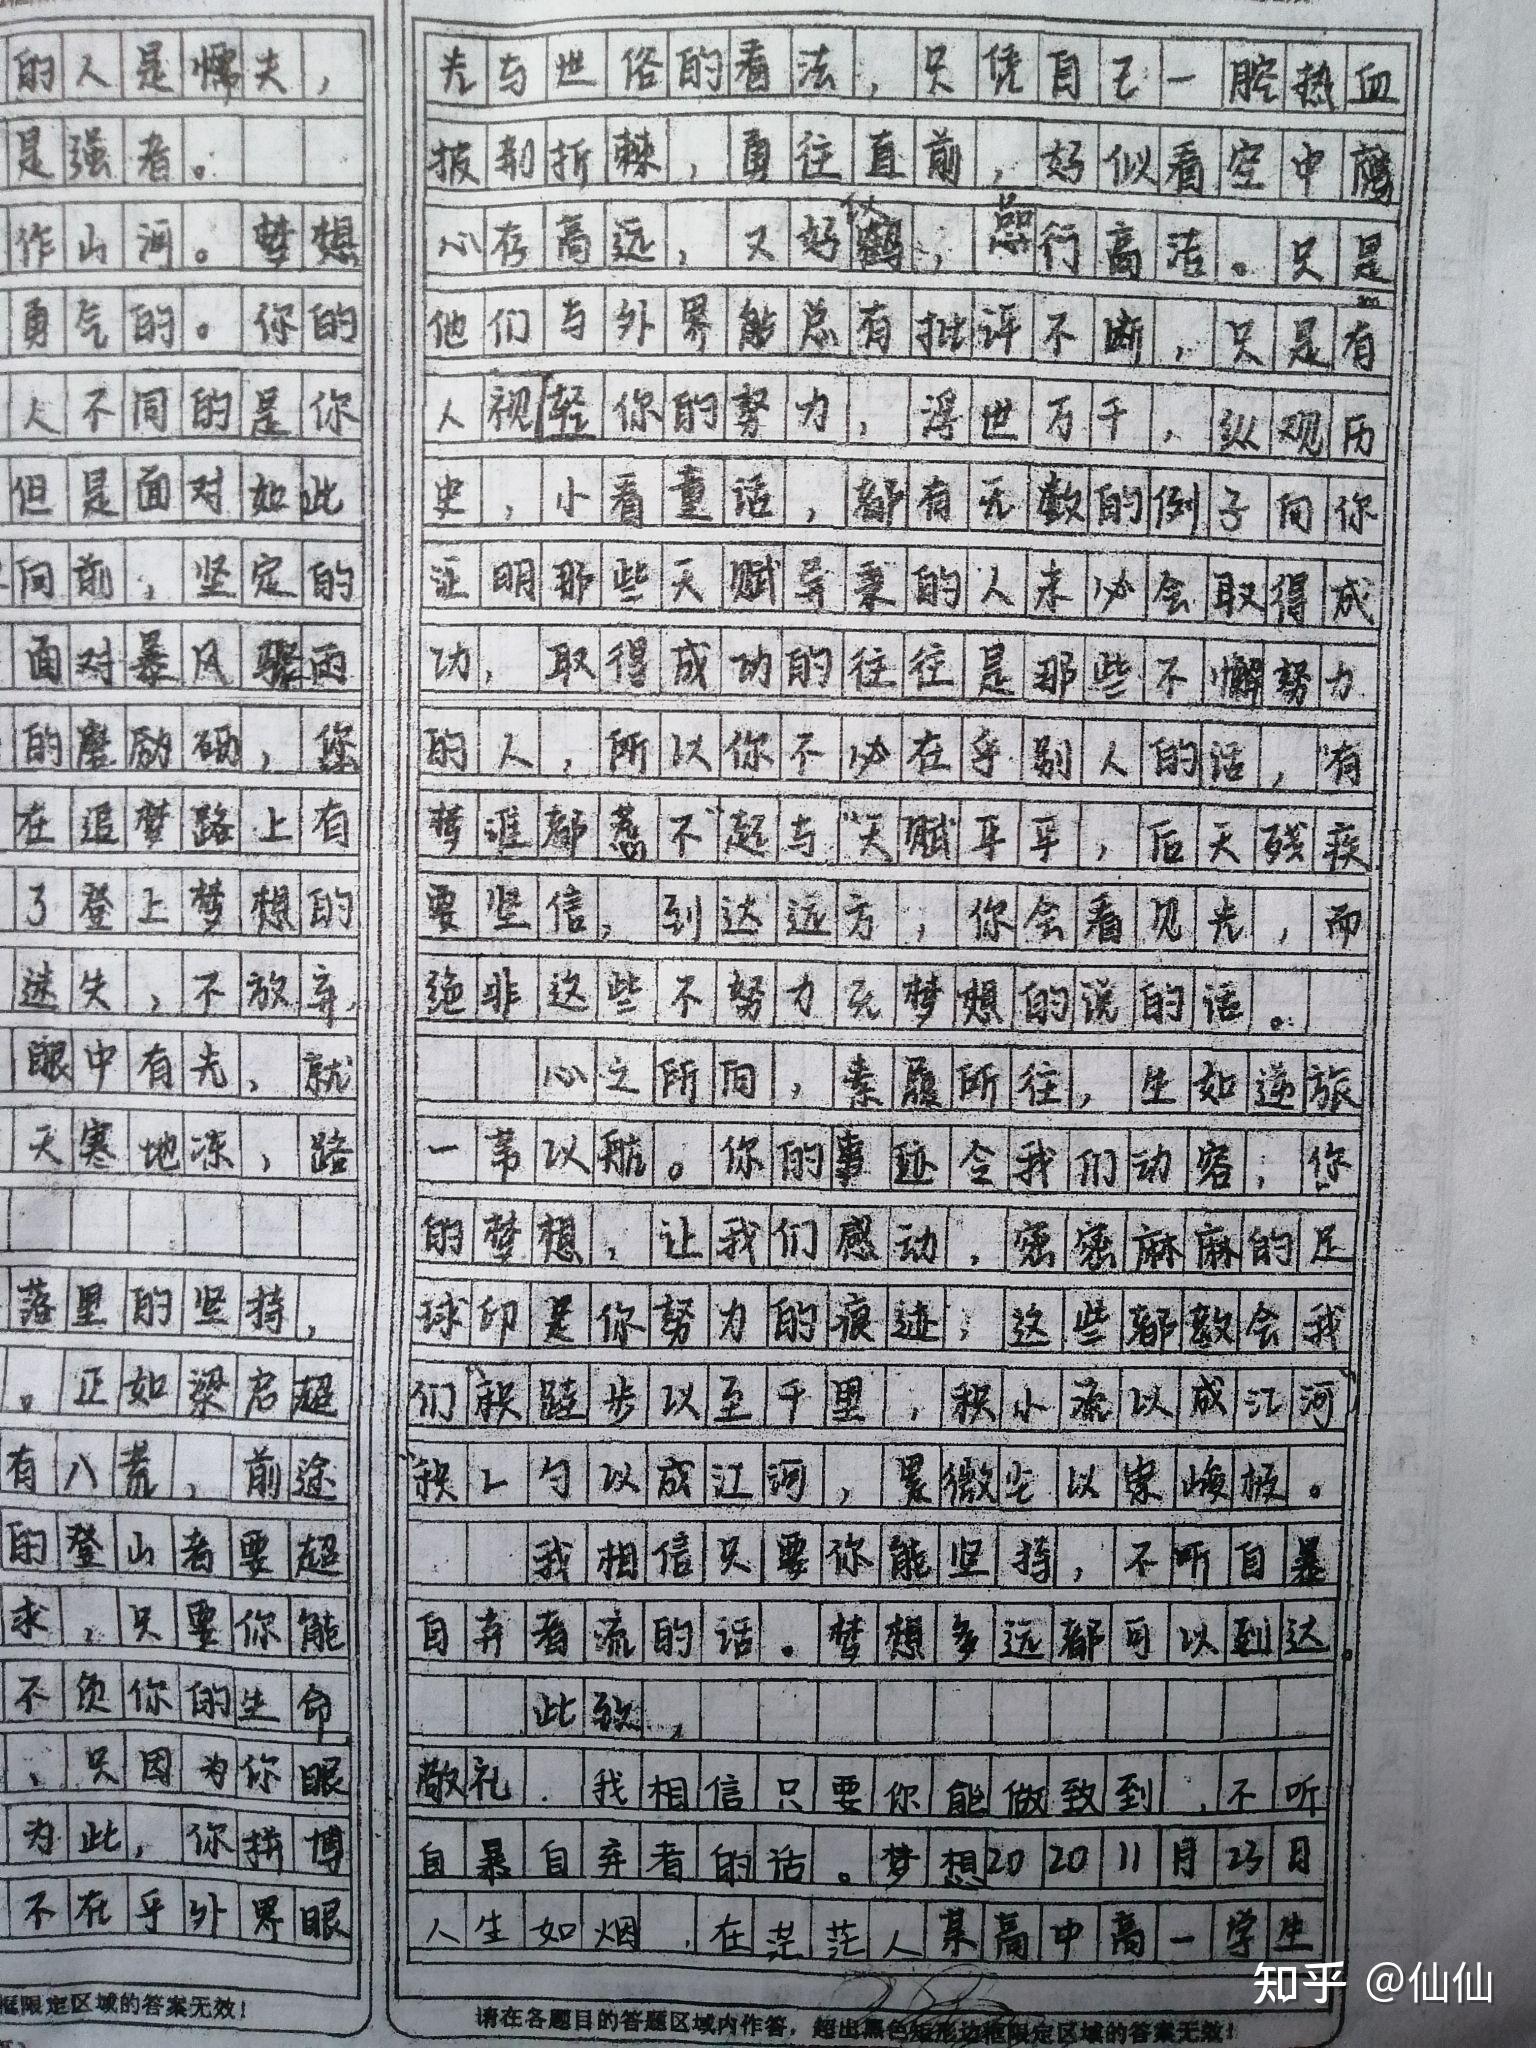 的人是懦夫，
是强者。
作山河。梦想
勇气的。你的
人不同的是你
但是面对如此
向前，坚定的
面对暴风骤雨
的磨励砺，您
在追梦路上有
了登上梦想的
迷失，不放弃，
眼中有光，就
天寒地冻，路
落里的坚持，
。正如梁启超
有八荒，前途
的登山者要超
求，只要你能
不负你的生命
，只因为你眼
为此，你拼博
不在乎外界眼
框限定区域的答案无效！
光与世俗的看法，只凭自己一腔热血
披荆折棘，勇往直前，好似看空中鹰
心存高远，又好似鹤，品行高洁。只是
他们与外界能总有批评不断，只是有
人视轻你的努力，浮世万千，纵观历
史，小看童话，都有无数的例子向你
证明那些天赋异禀的人未必会取得成
功，取得成功的往往是那些不懈努力
的人，所以你不必在乎别人的话，"有
梦谁都惹不"起与"天赋平平，后天残疾
要坚信，到达远方，你会看见光，而
绝非这些不努力无梦想的说的话。
心之所向，素履所往，生如逆旅
一苇以航。你的事迹令我们动容，你
的梦想，让我们感动，密密麻麻的足
球印是你努力的痕迹，这些都教会我
们"积跬步以至千里，积小流以成江河"
"积上勺以成江河，累微尘以崇峻极。
我相信只要你能坚持，不听自暴
自弃者流的话。梦想多远都可以到达。
此致，
敬礼．我相信只要你能做致到，不听
自暴自弃者的话。梦想2020 11月23日
人生如烟，在茫茫人某高中高一学生
请在各题目的答题区域内作答，超出黑色矩形边框限定区域的答案无效！
知乎 @仙仙